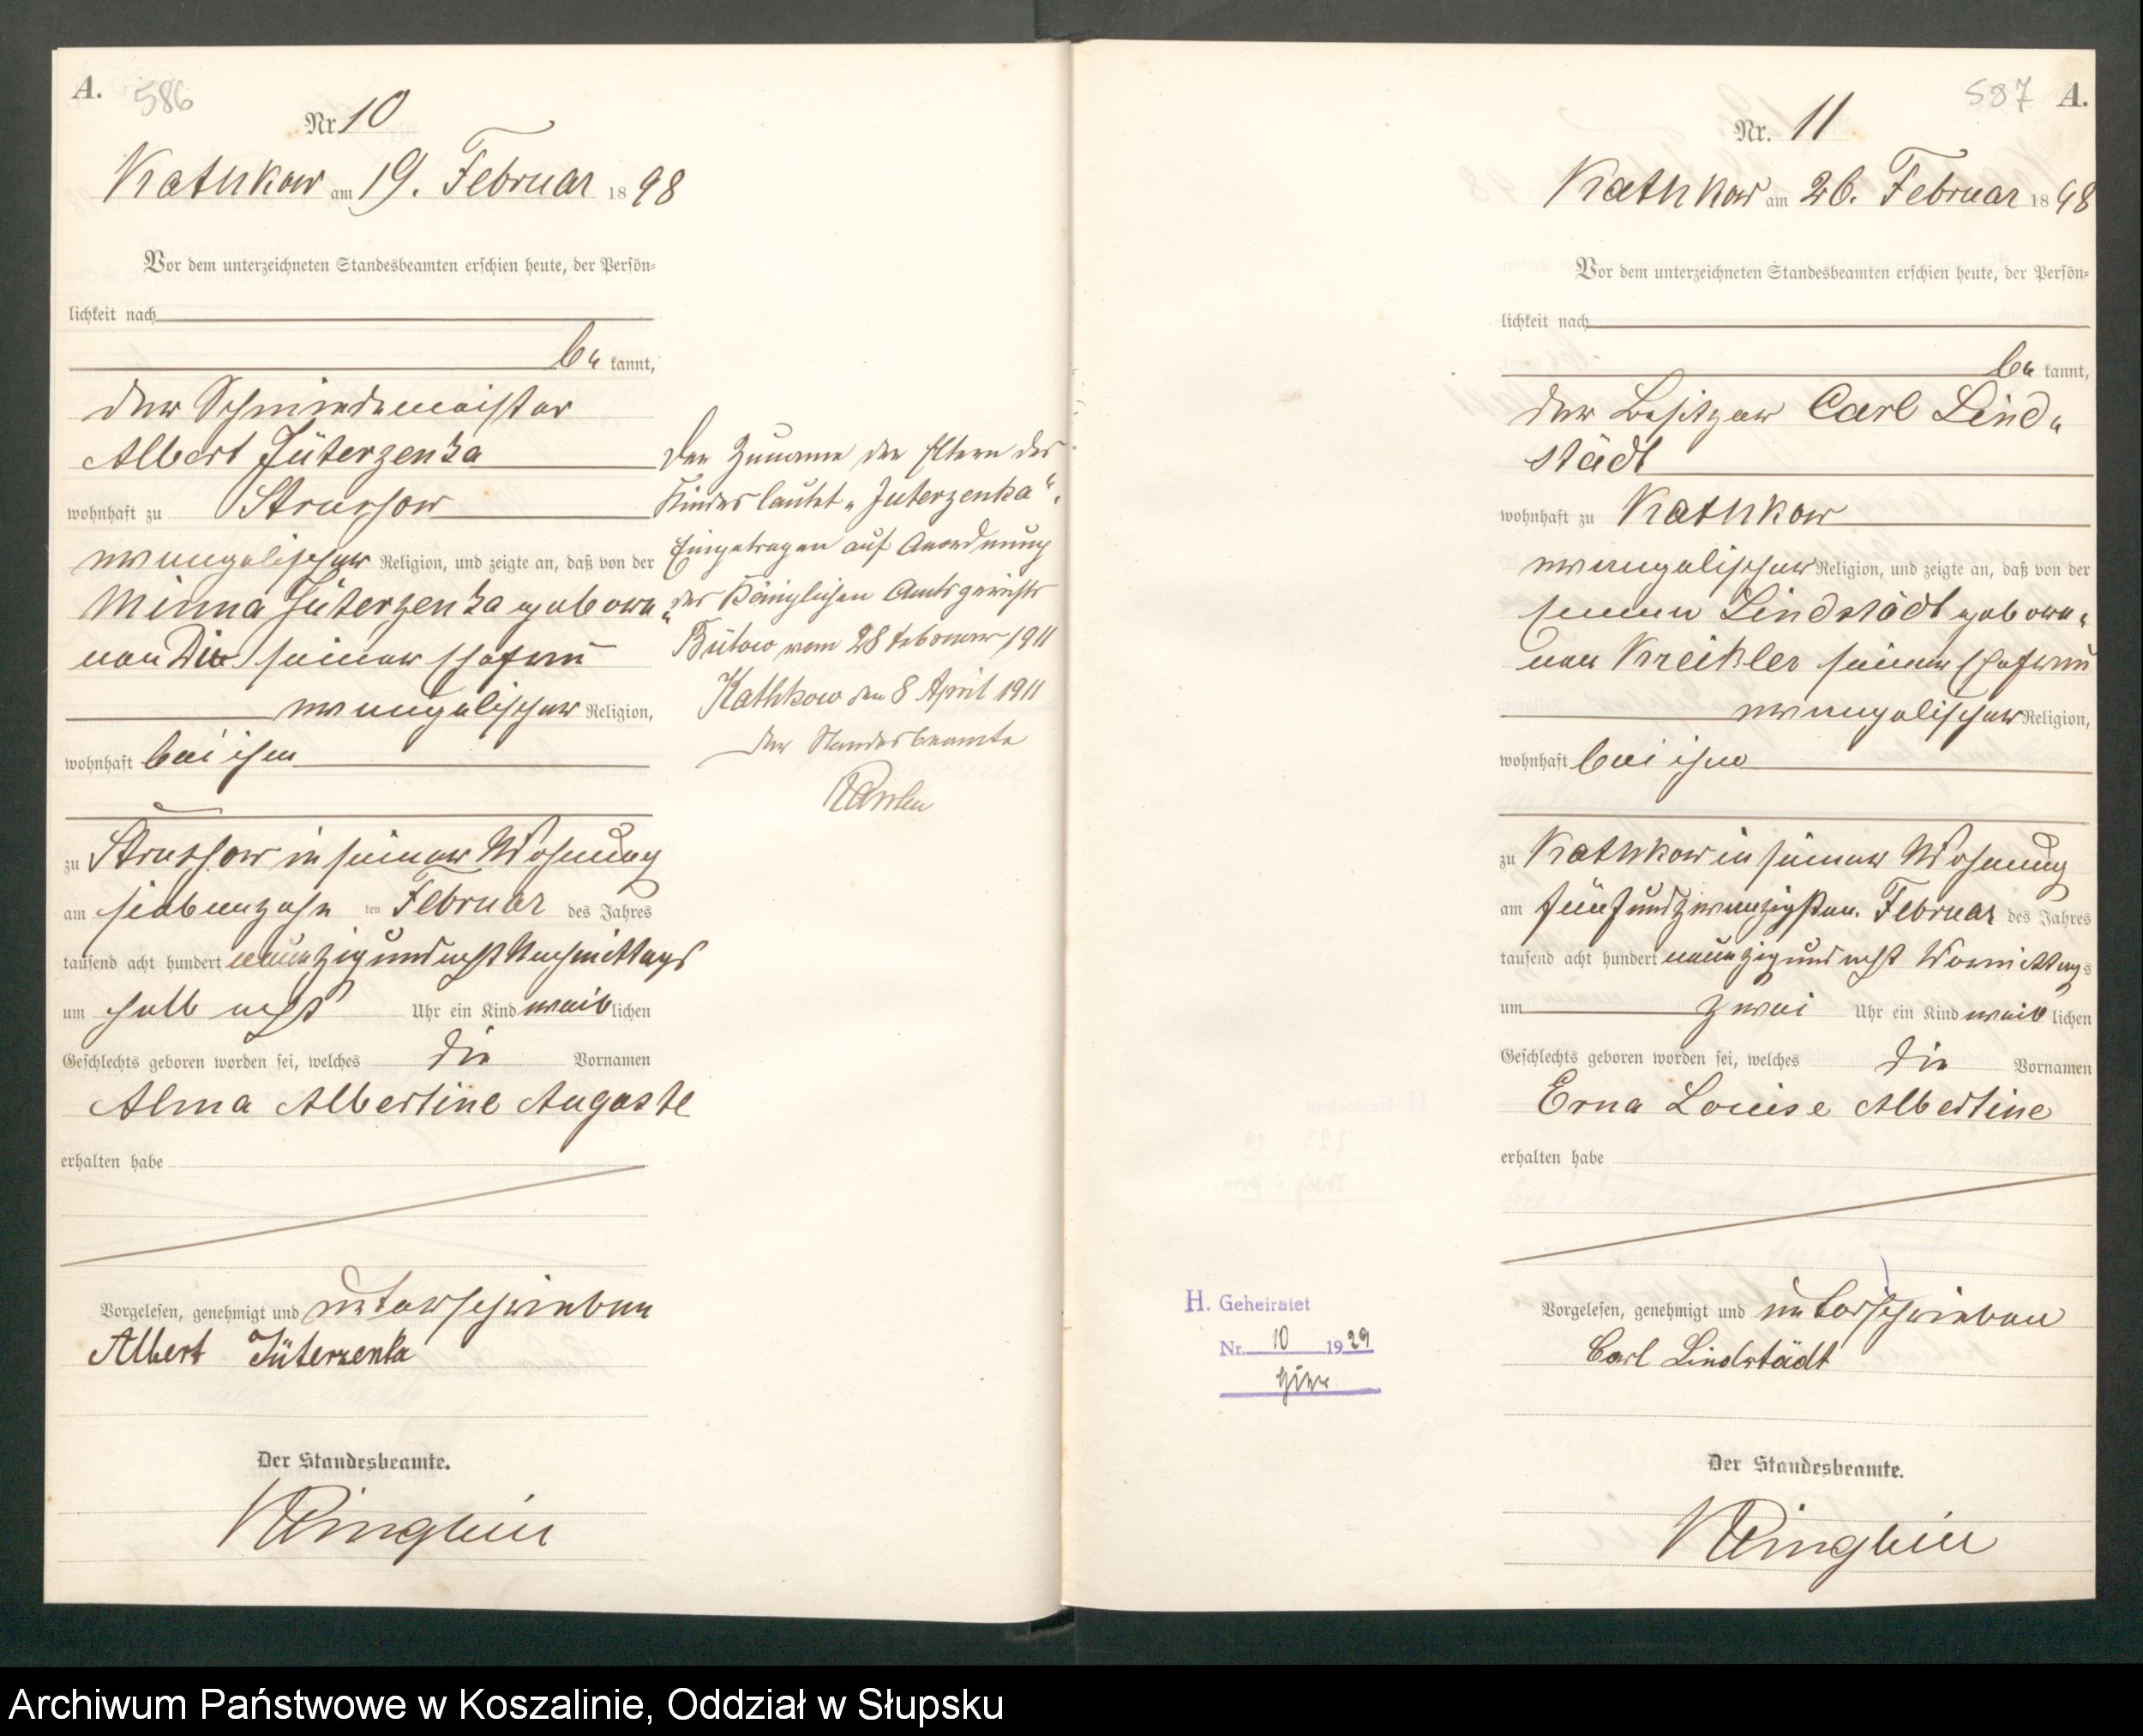 A. 586
Nr. 10
Kathkow am 19. Februar 1898
Vor dem unterzeichneten Standesbeamten erschien heute, der Persön-
lichkeit nach
be kannt,
der Schmiedemeister
Albert Jüterzenka
wohnhaft zu Strussow
evangelischer Religion, und zeigte an, daß von der
Minna Jüterzenka gebore-
nen Die seiner Ehefrau
evangelischer Religion,
wohnhaft bei ihm
zu Strussow in seiner Wohnung
am siebenzehn ten Februar des Jahres
tausend acht hundert neunzig und acht Nachmittags
um halb acht Uhr ein Kind weiblichen
Geschlechts geboren worden sei, welches die Vornamen
Alma Albertine Auguste
erhalten habe
Vorgelesen, genehmigt und unterschrieben
Albert Jüterzenka
Der Standesbeamte.
Der Zuname der Eltern des
Kindes lautet „Juterzenka“.
Eingetragen auf Anordnung
des Königlichen Amtsgerichts
Bütow vom 28 Februar 1911
Kathkow den 8 April 1911
Der Standesbeamte
587 A.
Nr. 11
Kathkow am 26. Februar 1898
Vor dem unterzeichneten Standesbeamten erschien heute, der Persön-
lichkeit nach
be kannt,
der Besitzer Carl Lind-
städt
wohnhaft zu Kathkow
evangelischer Religion, und zeigte an, daß von der
Lindstädt gebore-
nen Kreikler seiner Ehefrau
evangelischer Religion,
wohnhaft bei ihm
zu Kathkow in seiner Wohnung
am fünfundzwanzigsten Februar des Jahres
tausend acht hundert neunzig und acht Vormittags
um zwei Uhr ein Kind weiblichen
Geschlechts geboren worden sei, welches die Vornamen
Erna Louise Albertine
erhalten habe
Vorgelesen, genehmigt und unterschrieben
Carl Lindstädt
Der Standesbeamte.
H. Geheiratet
Nr. 10 1929
hier
Archiwum Państwowe w Koszalinie, Oddział w Słupsku